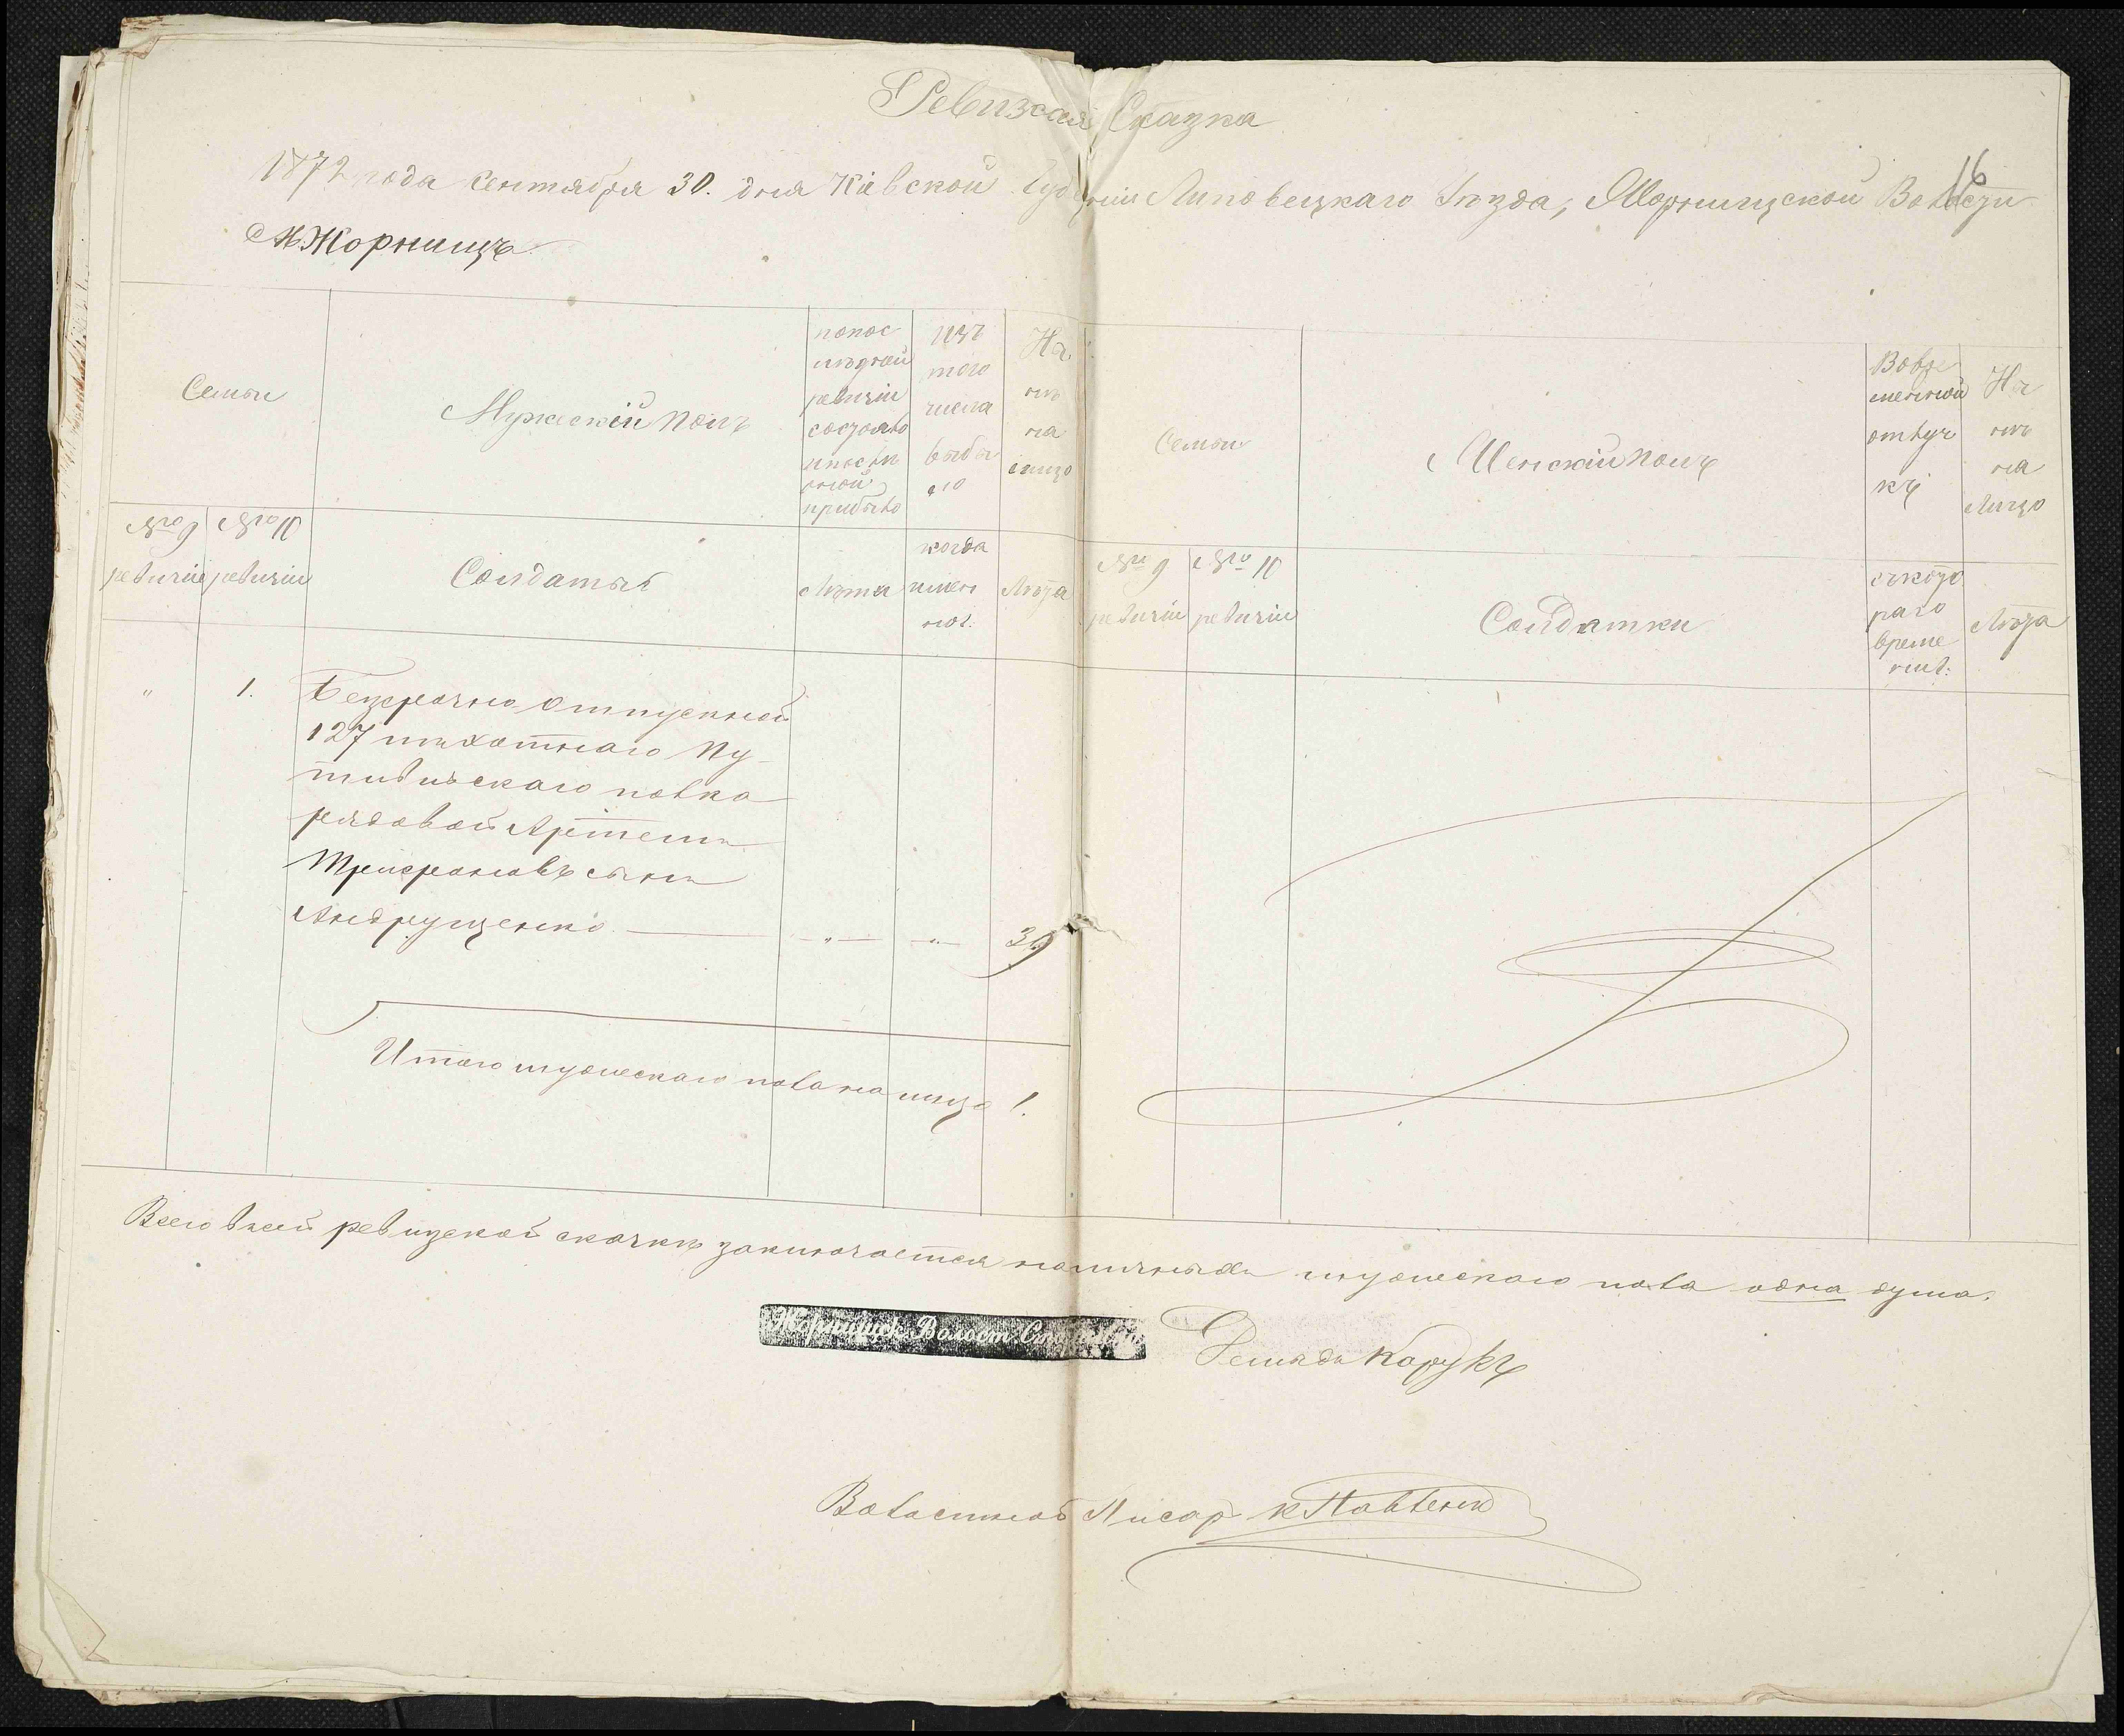 Ревизская Сказка
16
1872 года Сентября 30. дня Кіевской Губерніи Липовецкаго Уѣзда, Жорнищской Волости
М Жорнищъ
Семьи
Мужескій полъ
по пос
лѣдней
ревизіи
состояло
и послѣ
оной
прибыло
Изъ
того
числа
выбы
ло
Ны
нѣ
на
лицо
Семьи
Женскій полъ
Во вре
менной
отлуч
кѣ
Ны
нѣ
на
Лицо
№ 9
ревизіи
№ 10
ревизіи
Солдаты
Лѣта
когда
имен
но.
Лѣта
№ 9
ревизіи
№ 10
ревизіи
Солдатки
съ кото
раго
време
ни.
Лѣта
" 1. Безсрочно отпускной
127 пѣхотнаго Пу-
тивльскаго полка
рядовой Артемъ
Трифоновъ сынъ
Андрущенко — " — " — 39
Итого мужескаго пола на лицо 1.
Всего в сей ревизской сказкѣ заключается наличныхъ мужескаго пола одна душа.
Жорнищск. Волост. Старшина
Демидъ Карукъ
Волостной Писарь К Павленко